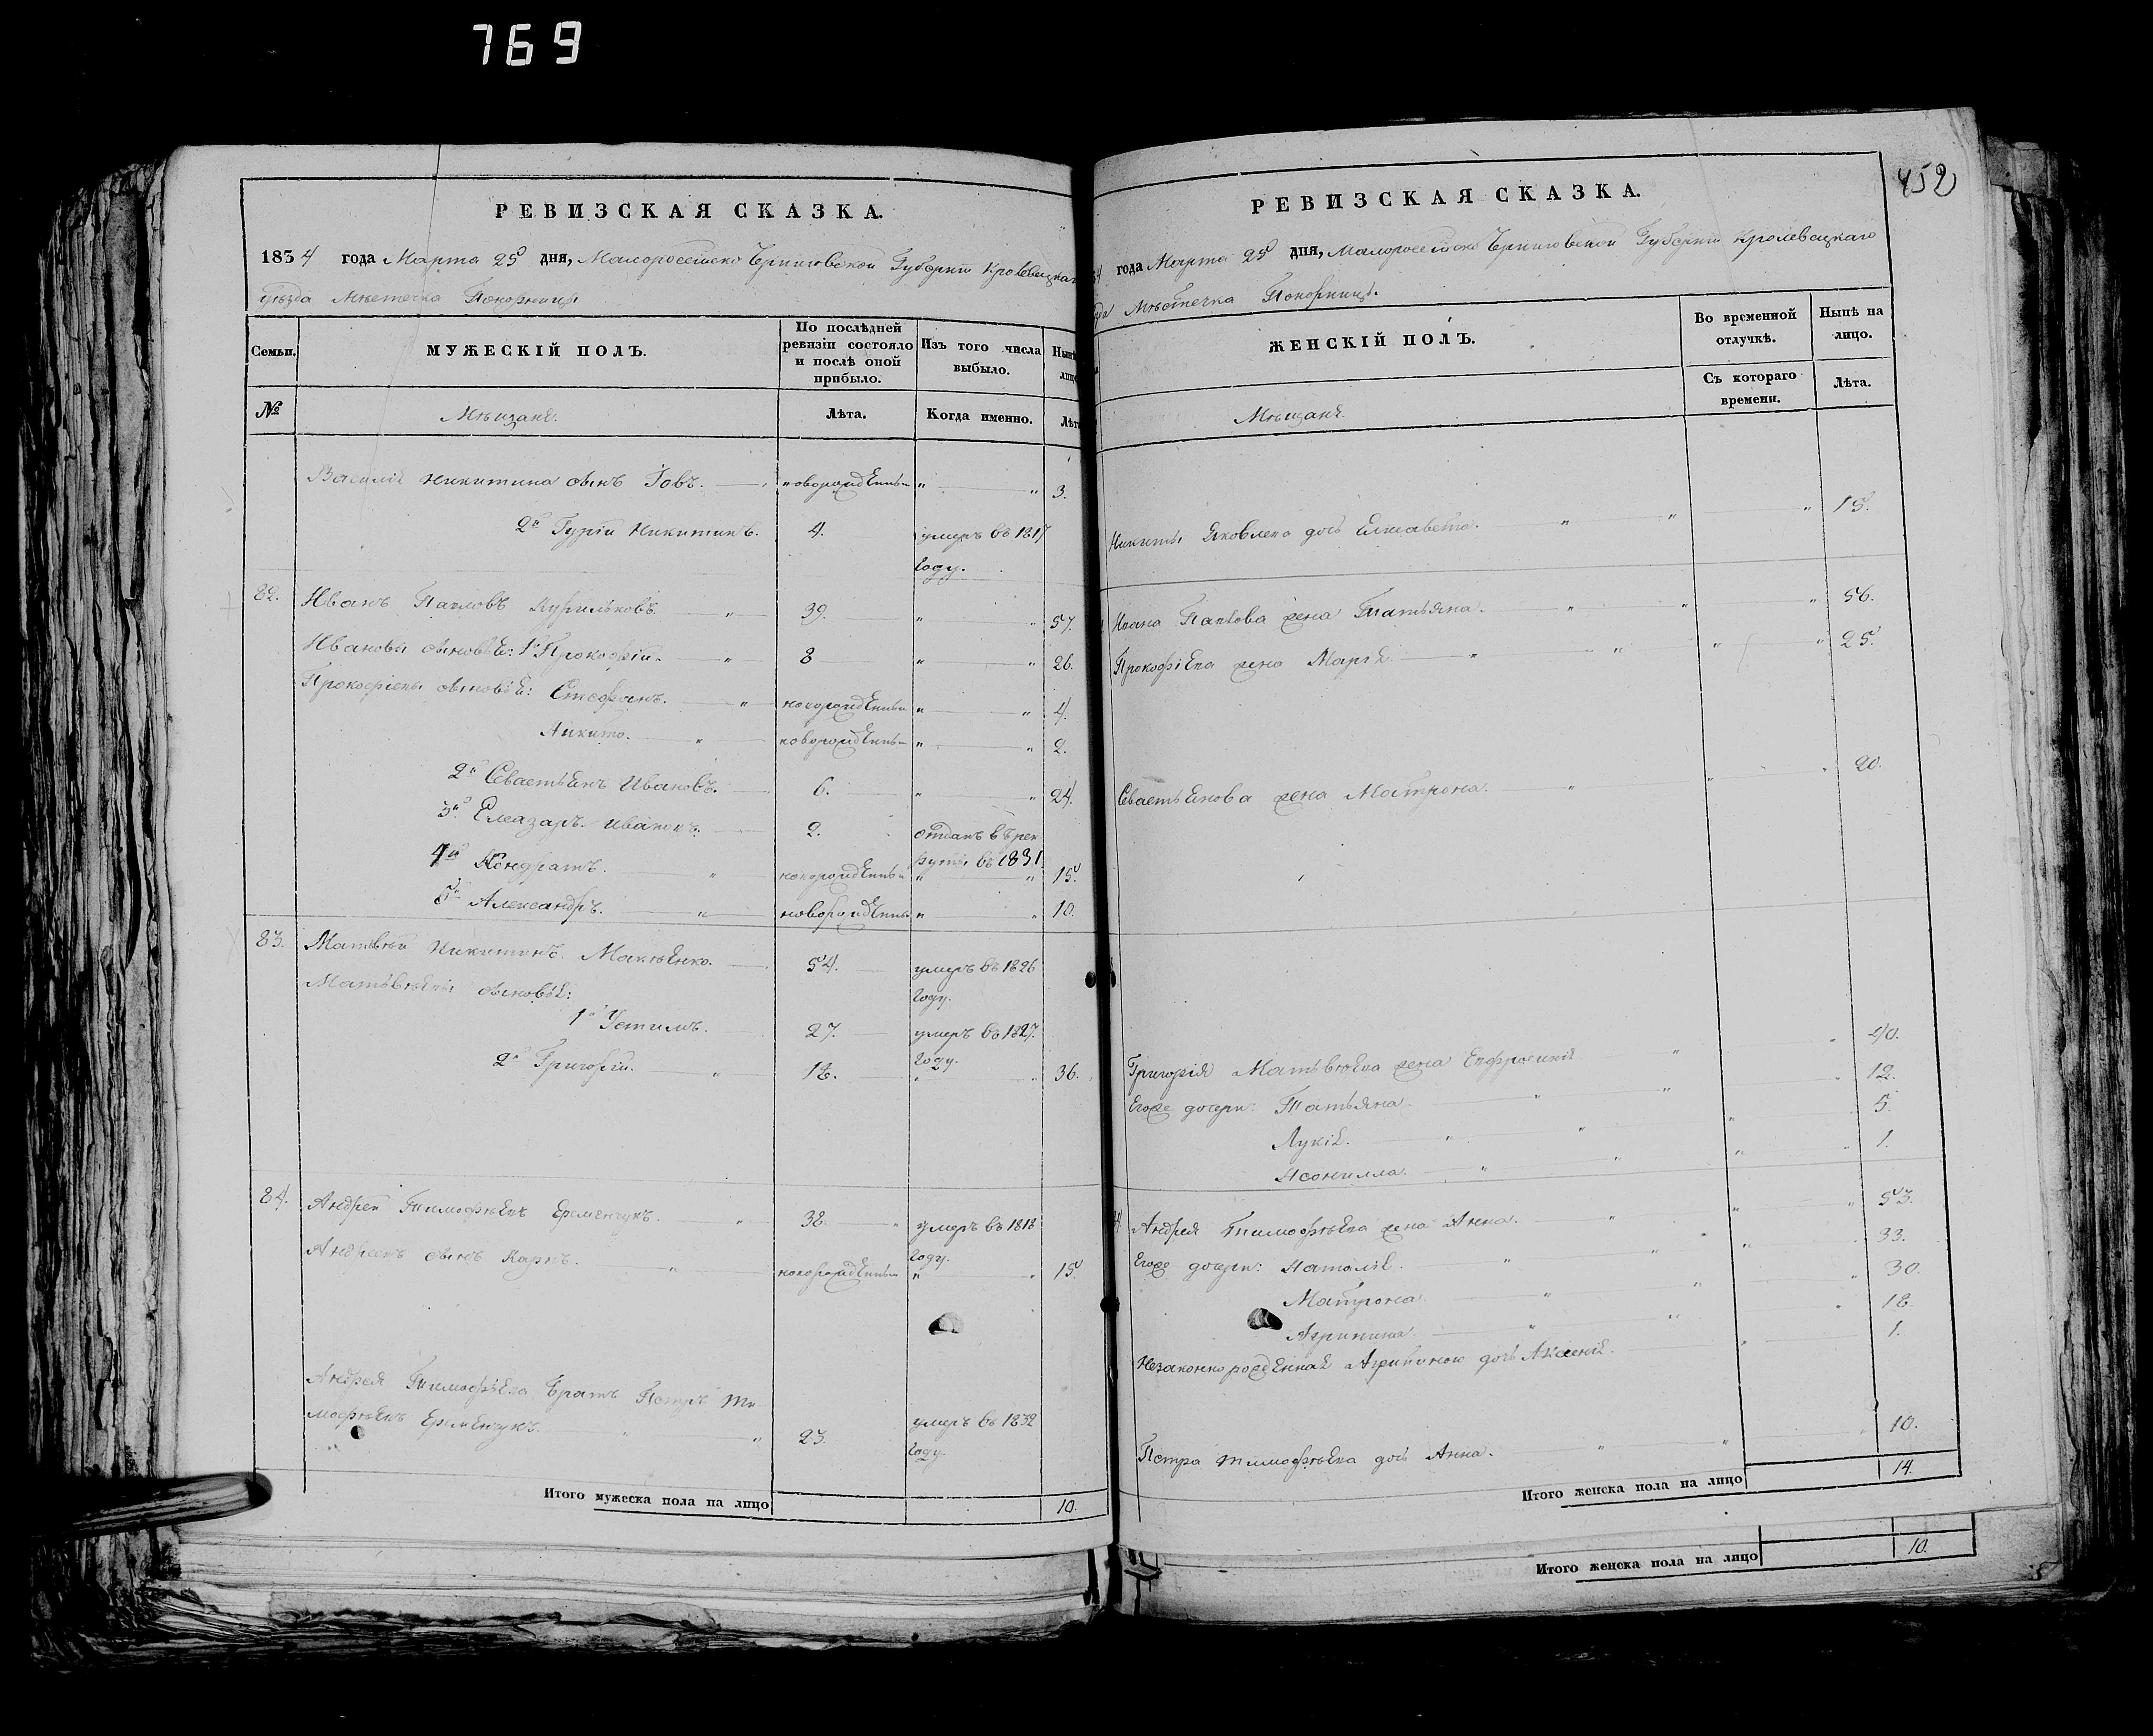 769
РЕВИЗСКАЯ СКАЗКА.
1834 года Марта 25 дня, Малоросейско Черниговской Губерніи Кролевецкаго
уѣзда Мѣстечка Понорницы
Семьи.
МУЖЕСКІЙ ПОЛЪ.
По послѣдней ревизіи состояло и послѣ оной прибыло.
Изъ того числа выбыло.
Нынѣ лицо
№
Мѣщане.
Лѣта.
Когда именно.
Лѣта
Василія Никитина сынъ Іовъ. новорожденный " " 3.
2й Гурій Никитинъ. 4. умеръ въ 1817
году.
82. Иванъ Павловъ 39. " " 57.
Ивановы сыновья: 1й Прокофій. " 8 " " 26.
Прокофіевы сыновья: Стефанъ. " новорожденный " " 4.
Никита. " новорожденный " " 2.
2й Севастьянъ Ивановъ. 6. " " 24.
3й Елеазаръ Ивановъ. 2. отданъ въ рек
руты въ 1831
4й Кондратъ. " новорожденный " " 15.
5й Александръ. " новорожденный " " 10.
83. Матвѣй Никитинъ 54. умеръ въ 1826
году.
Матвѣевы сыновья:
1й Устимъ. 27. умеръ въ 1827.
году.
2й Григорій. " 18. " " 36.
84. Андрей Тимофѣевъ Еременчукъ. " 38. " умеръ въ 1818
году.
Андреевъ сынъ Карпъ. " новорожденный " " 15.
Андрея Тимофѣева братъ Петръ Ти
мофѣевъ Еременчукъ. " " 23. умеръ въ 1832
году.
Итого мужеска пола на лицо 10.
452
РЕВИЗСКАЯ СКАЗКА.
34 года Марта 25 дня, Малоросейско Черниговской Губерніи Кролевецкаго
да Мѣстечка Понорницы.
ЖЕНСКІЙ ПОЛЪ.
Во временной отлучкѣ.
Нынѣ на лицо.
Съ котораго времени.
Лѣта.
Мѣщане.
Никиты Яковлева дочь Елисавета. " " " 15.
Ивана Павлова жена Татьяна. " " " 56.
Прокофіева жена Марія. " " " " 25.
Севастьянова жена Матрона. " " " 20.
Григорія Матвѣева жена Евфросинія " " 40.
Егоже дочери: Татьяна. " " " 12.
Лукія. " " " 5.
Неонилла. " " " " 1.
84 Андрея Тимофѣева жена Анна. " " " 53.
Егоже дочери: Наталія. " " " " 33.
Матрона. " " " 30.
Агрипина. " " " 18.
Незаконнорожденная Агрипиною дочь Аксенія. " 1.
Петра Тимофѣева дочь Анна. " " " 10.
Итого женска пола на лицо 14.
Итого женска пола на лицо 10.